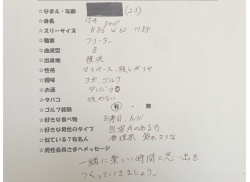 ☆なまえ・年齢 (23)
☆身長 154
☆スリーサイズ B86 W60 H88
☆職業 フリーター
☆血液型 B
☆出身地 横浜
☆性格 マイペース、
☆趣味 ヨガ、ゴルフ
☆お酒
☆タバコ 吸わない
☆ゴルフ経験 有・無
☆好きな食べ物 お寿司、
☆好きな男性のタイプ 包容力のある方
☆似ている?有名人
☆男性会員さまへメッセージ
一緒に楽しい時間と思い出を
つくっていきましょう。